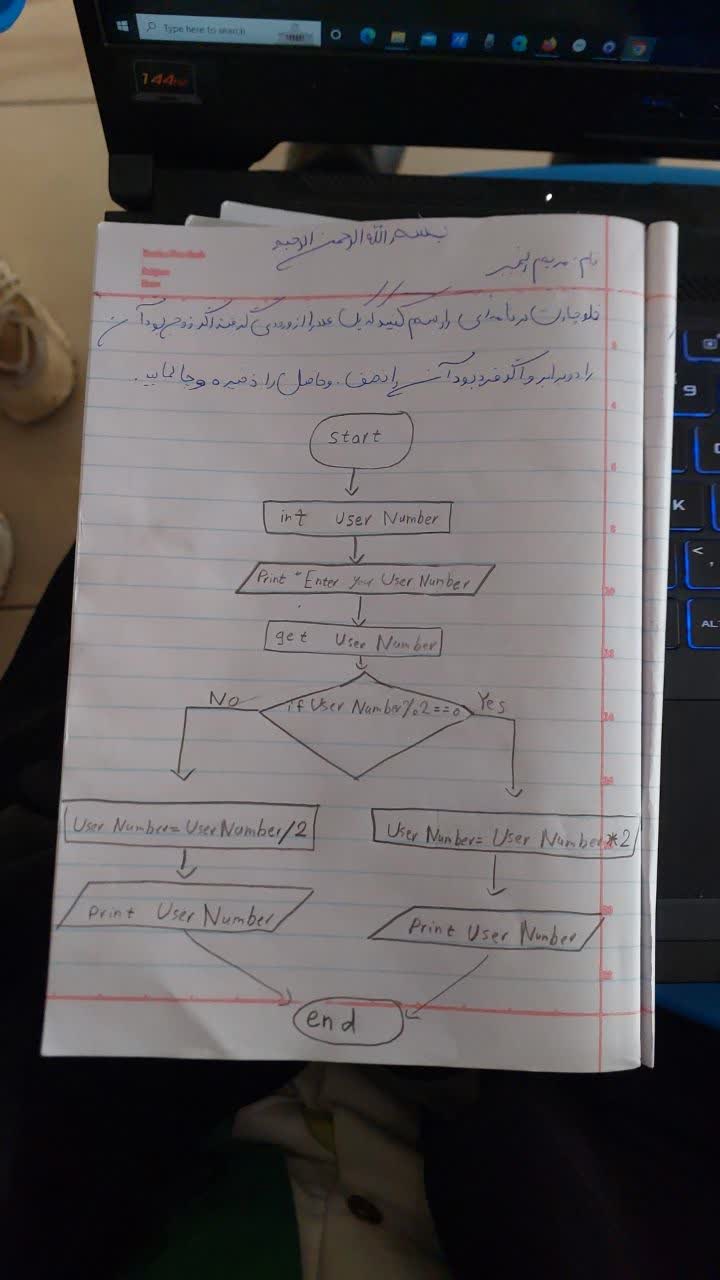 Type here to search
144Hz
بسم الله الرحمن الرحیم
نام: مریم
فلوچارت برنامه‌ای را رسم کنید که یک عدد را از ورودی گرفته اگر زوج بود آن
را دو برابر و اگر فرد بود آن را نصف. و حاصل را ذخیره و چاپ نماید.
start
int User Number
Print "Enter your User Number
get User Number
if User Number%2==0
No
Yes
User Number=User Number/2
User Number= User Number*2
Print User Number
Print User Number
end
9
K